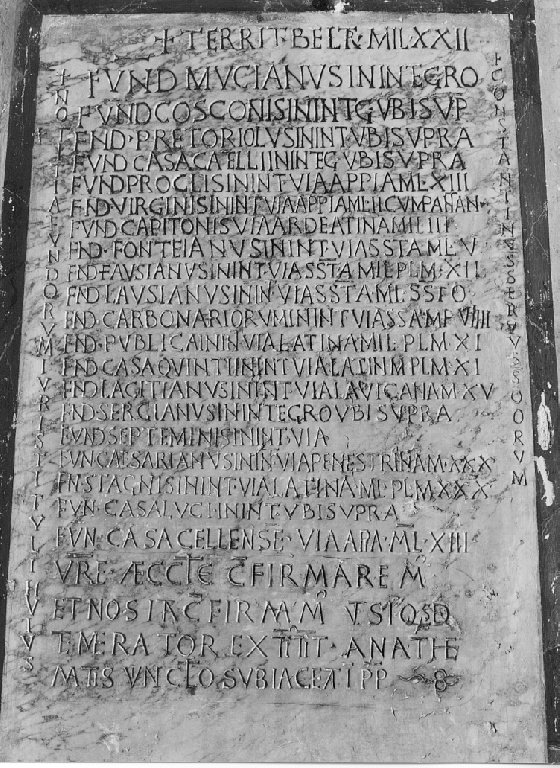 + TERRIT BELT MIL XXII
+ FUND MUCIANUS IN INTEGRO
FUND COSCONIS IN INTG UBI SUP
FND PRETORIOLUS IN INT UBI SUPRA
FUND CASA CATELLI IN INTEG UBI SUPRA
FUND PROCLIS IN INT UIA APPIA ML XIII
FND UIRGINIS IN INT UIA APPIA ML II CUMPANAN
FUND CAPITONIS UIA ARDEATINA MIL III
FND FONTEIANUS IN INT UIA SSTA ML V
FND FAUSIANUS IN INT UIA SSTA MIL PLM XII
FND LAUSIANUS IN INT UIA SSTA ML SSTO
FND CARBONARIORUM IN INT UIA SSTA ML VIIII
FND PUBLICA IN INT UIA LATINA MIL PLM XI
FND CASA QUINTI IN INT UIA LATIN M PLM XI
FND LAGITIANUS IN INT UIA LAUICANA M XV
FND SERGIANUS IN INTEGRO UBI SUPRA
FUND SEPTEMINIS IN INT UIA
FUN CAESARIANUS IN INT UIA PENESTRINA M XXX
FN STAGNIS IN INT UIA LATINA ML PLM XXX
FUN CASA LUCLI IN INT UBI SUPRA
FUN CASA CELLENSE UIA APA ML XIII
URE AECCLE C FIRMARE M
ET NOS ITA C FIRMAM UT SI QSD
TEMERATOR EXTITIT ANATHE
MATIS UNCLO SUBIACEAT IPP
+ NOTITIA FUNDORUM IURIS TITULI HUIUS
+ CONSTANTINES